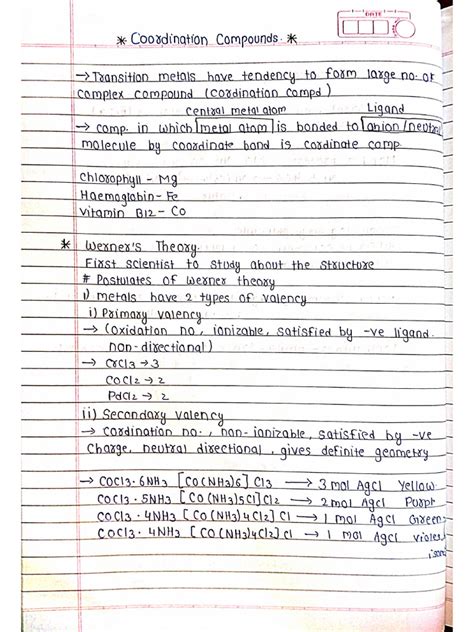 DATE
* Coordination Compounds. *
→ Transition metals have tendency to form large no. of
complex compound (coordination compd)
central metal atom Ligand
→ comp. in which metal atom is bonded to anion/neutral
molecule by coordinate bond is cordinate comp
Chlorophyll - Mg
Haemoglobin - Fe
Vitamin B12 - Co
* Werner's Theory.
First scientist to study about the structure
# Postulates of werner theory
1) metals have 2 types of valency
i) Primary valency
→ (Oxidation no, ionizable, satisfied by -ve ligand.
non-directional)
→ CrCl3 → 3
CoCl2 → 2
PdCl2 → 2
ii) Secondary valency
→ Cordination no., non-ionizable, satisfied by -ve
Charge, neutral directional, gives definite geometry
→ COCl3·6NH3 [CO(NH3)6]Cl3 → 3 mol Agcl Yellow
COCl3·5NH3 [CO(NH3)5Cl]Cl2 → 2 mol Agcl Purpl
COCl3·4NH3 [CO(NH3)4Cl2]Cl → 1 mol Agcl Green
COCl3·4NH3 [CO(NH3)4Cl2]Cl → 1 mol Agcl violet